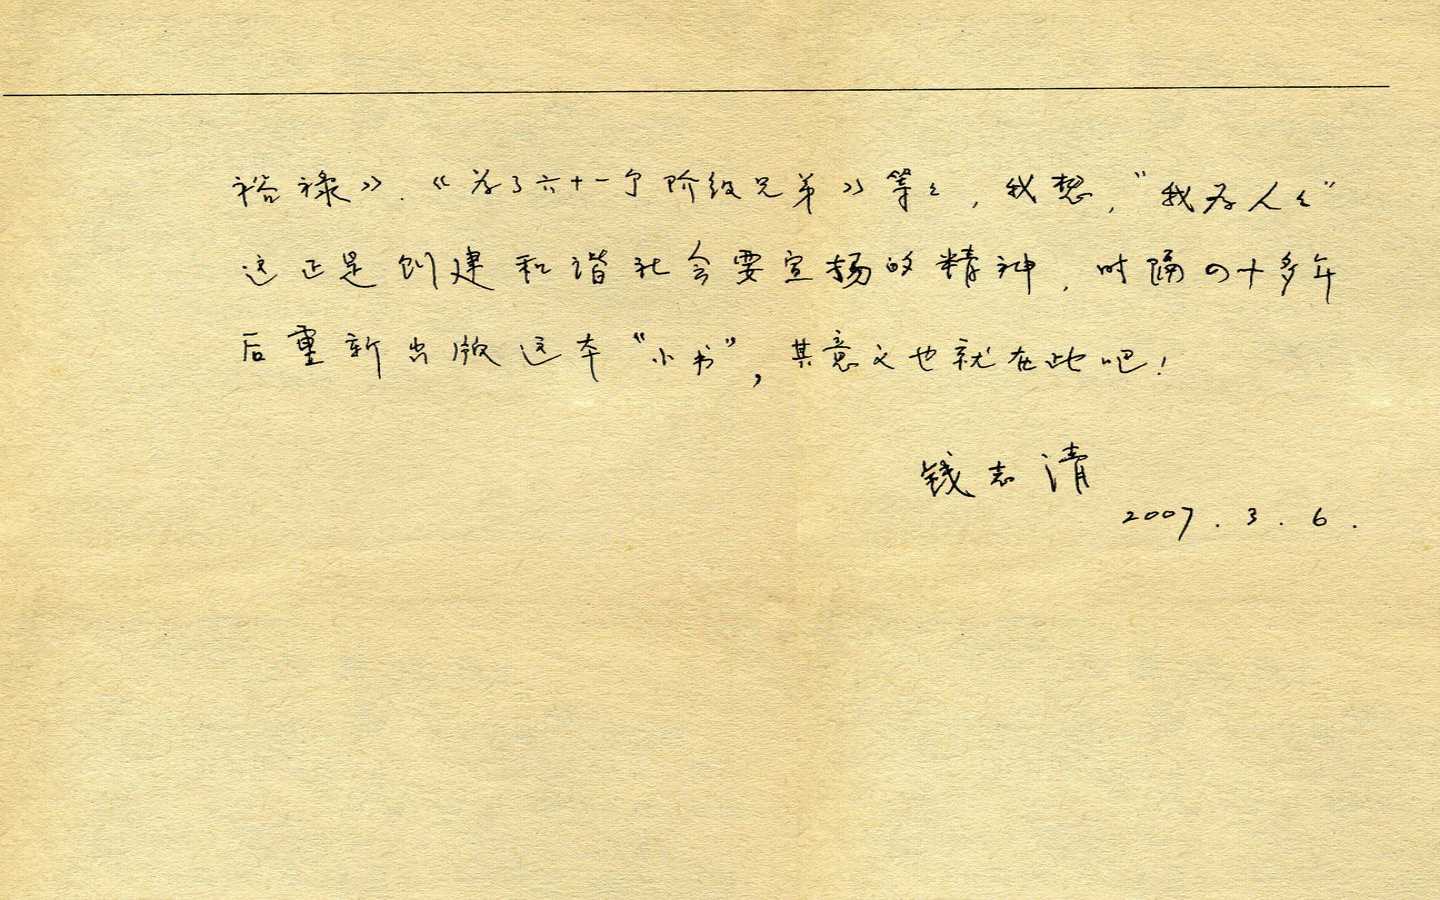 裕禄》.《为了六十一个阶级兄弟》等々,我想,“我为人々”
这正是创建和谐社会要宣扬的精神,时隔四十多年
后重新出版这本“小书”,其意义也就在此吧!
钱志清
2007.3.6.